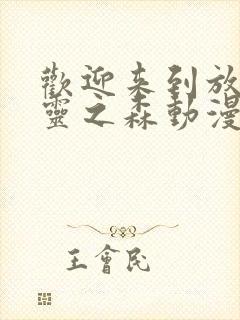 歡迎来到放
靈之森動漫
王會民